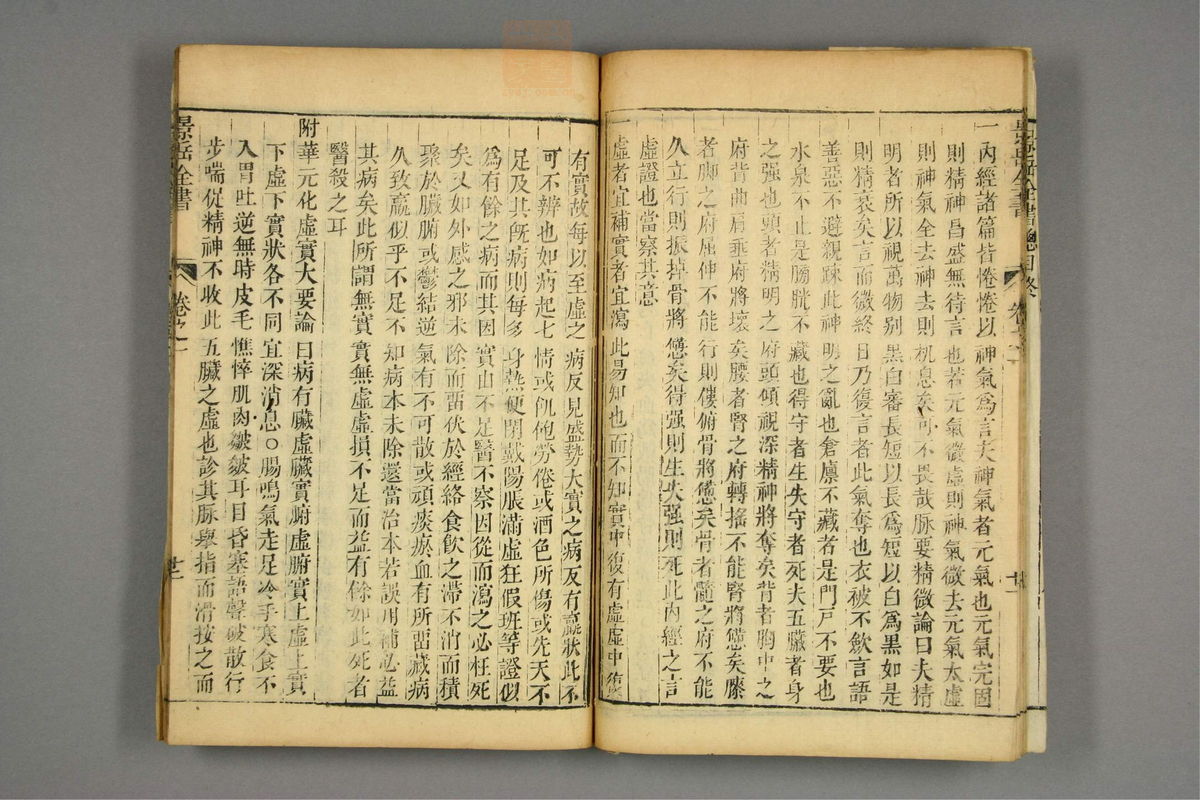 一內經諸篇皆惓惓以神氣爲言夫神氣者元氣也元氣完固
則精神昌盛無待言也若元氣微虛則神氣微去元氣太虛
則神氣全去神去則机息矣可不畏哉脉要精微論曰夫精
明者所以視萬物别黑白審長短以長爲短以白爲黑如是
則精衰矣言而微終日乃復言者此氣奪也衣被不歛言語
善惡不避親踈此神明之亂也倉廪不藏者是門戸不要也
水泉不止是膀胱不藏也得守者生失守者死夫五臟者身
之强也頭者精明之府頭傾視深精神將奪矣背者胸中之
府背曲肩垂府將壞矣腰者腎之府轉搖不能腎將憊矣膝
者脚之府屈伸不能行則僂俯骨將憊矣骨者髓之府不能
久立行則振掉骨將憊矣得强則生失强則死此內經之言
虛證也當察其意
虛者宜補實者宜瀉此易知也而不知實中復有虛虛中復
有實故每以至虛之病反見盛勢大實之病反有羸狀此不
可不辨也如病起七情或飢飽勞倦或酒色所傷或先天不
足及其旣病則每多身熱便閉戴陽脹滿虛狂假班等證似
爲有餘之病而其因實由不足醫不察因從而瀉之必枉死
矣又如外感之邪未除而畱伏於經絡食飮之滯不消而積
聚於臟腑或鬱結逆氣有不可散或頑痰瘀血有所畱藏病
久致羸似乎不足不知病本未除還當治本若誤用補必益
其病矣此所謂無實實無虛虛損不足而益有餘如此死者
醫殺之耳
附華元化虛實大要論曰病有臟虛臟實腑虛腑實上虛上實
下虛下實狀各不同宜深消息○腸鳴氣走足冷手寒食不
入胃吐逆無時皮毛憔悴肌肉皺皴耳目昏塞語聲破散行
步喘促精神不收此五臟之虛也診其脉舉指而滑按之而
景岳全書
卷之一